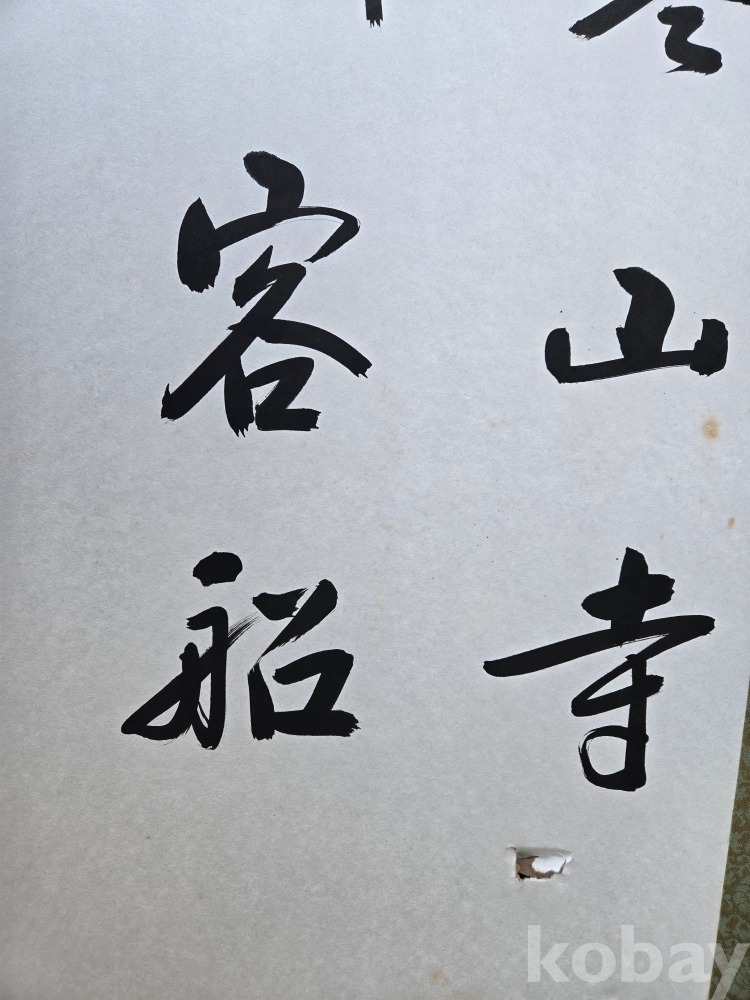 山寺
客船
kobay